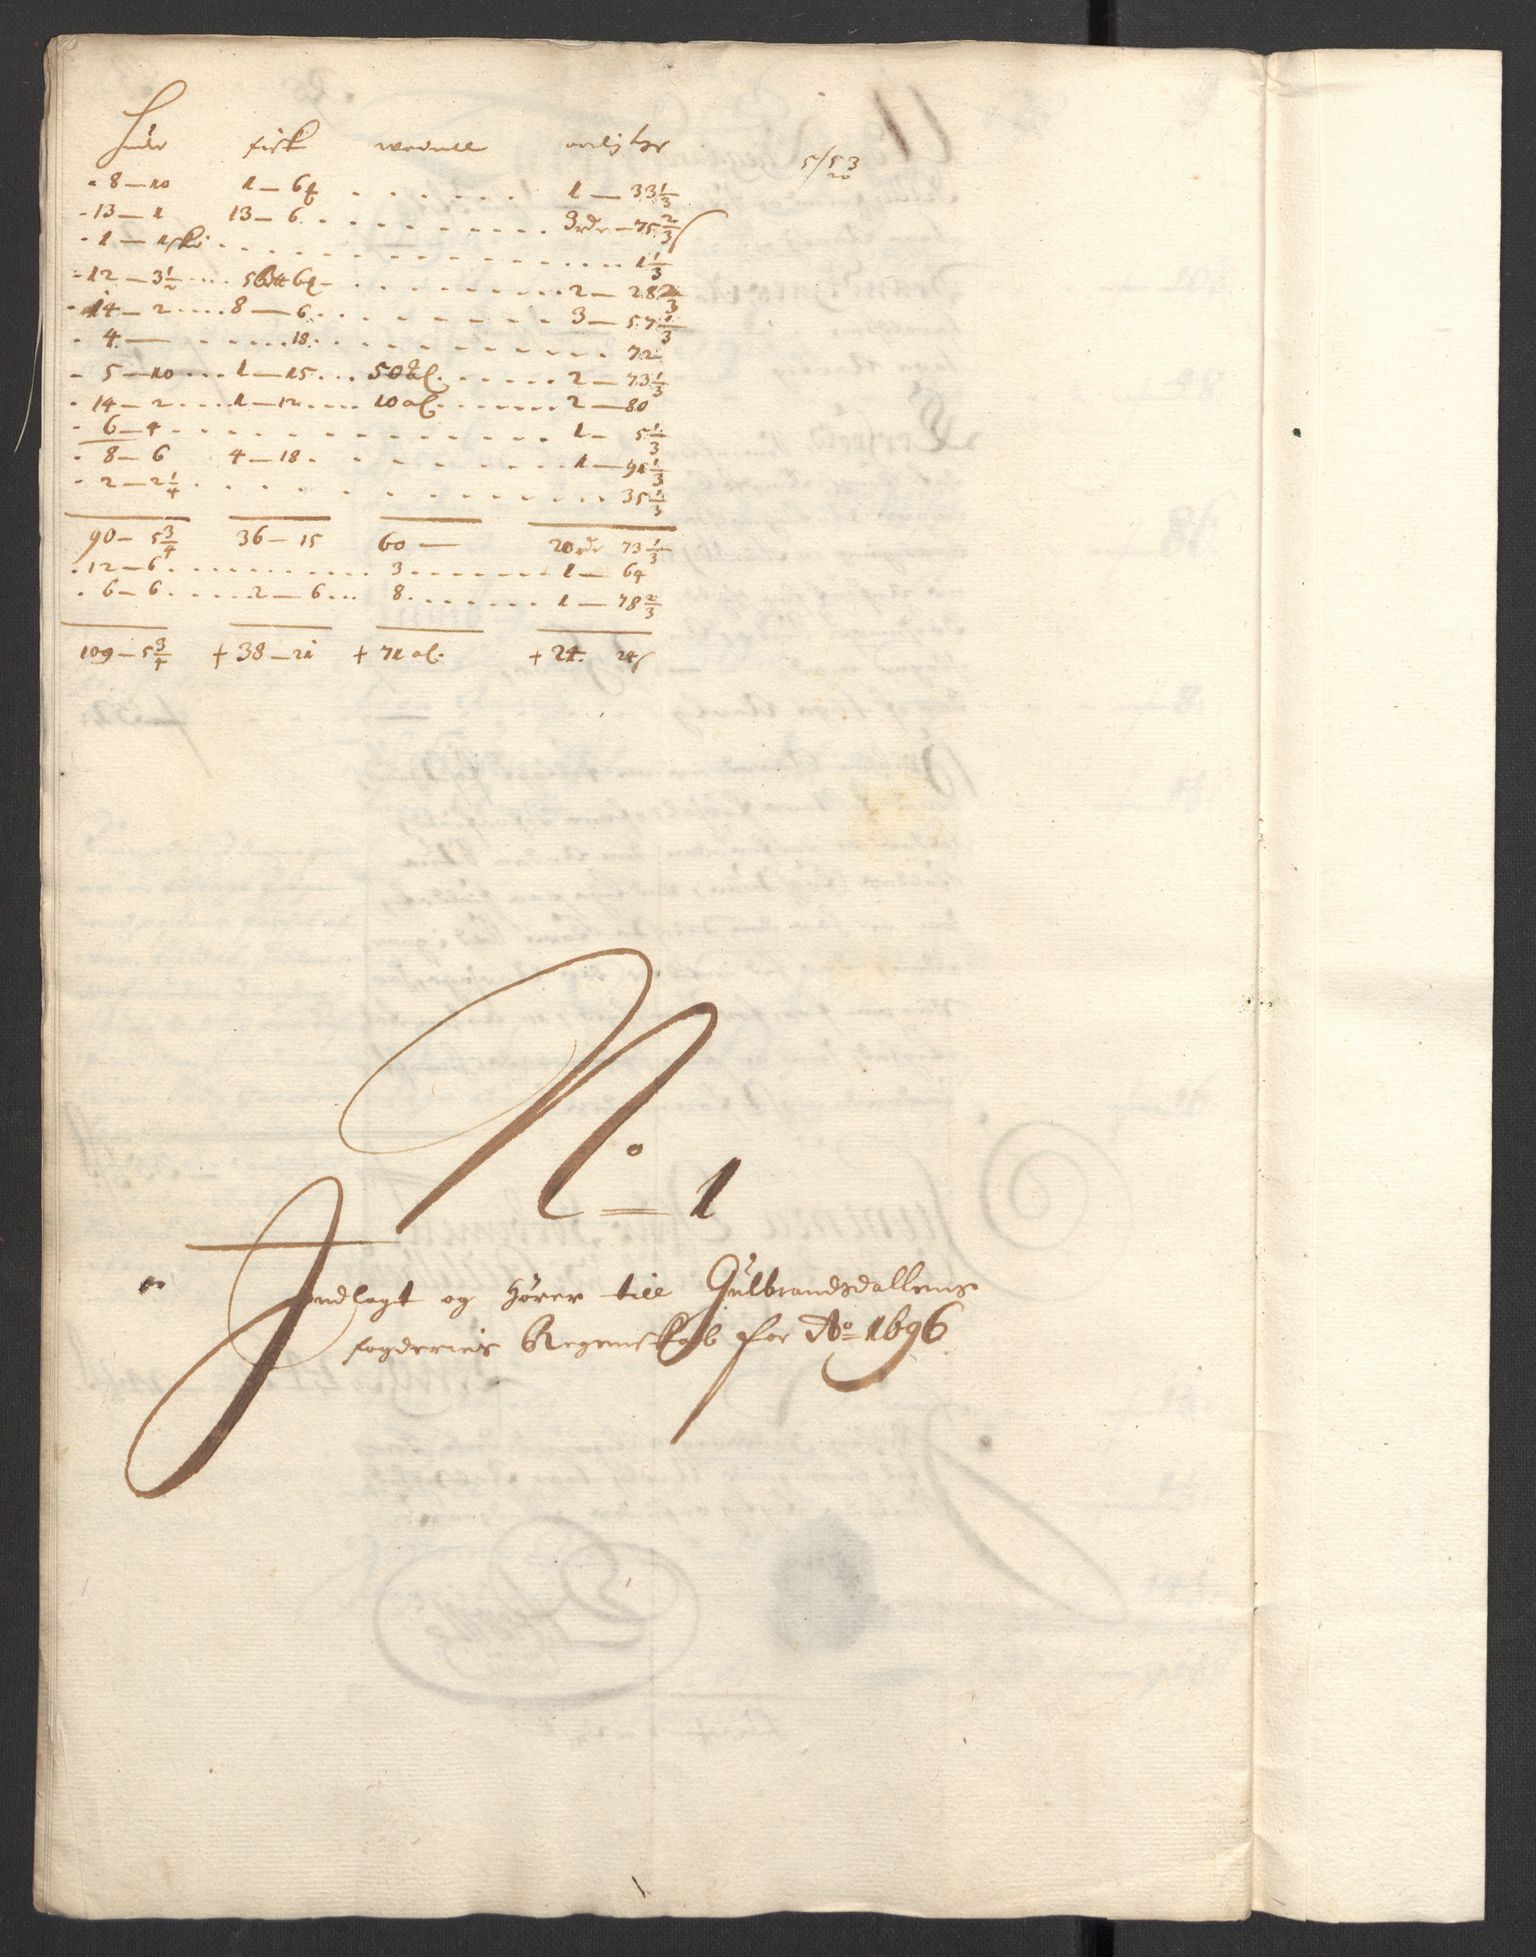 Hude fisk wadmell aarlig
8 — 10 1 — 6 1 — 33 1/3
13 — 1 13 — 6 3 rdr — 75 2/3 ß
1 — 1 1 1/3
12 — 3 1/2 5 6 2 — 28 2/3
14 — 2 8 — 6 3 — 57 1/3
4 — 18 72
5 — 10 1 — 15 50 al. 2 — 73 1/3
14 — 2 1 — 12 10 al. 2 — 80
6 — 4 1 — 5 1/3
8 — 6 4 — 18 1 — 91 1/3
2 — 2 1/4 35 1/3
90 — 5 3/4 36 — 15 60 — 20 rdr 73 1/3
12 — 6 3 1 — 64
6 — 6 2 — 6 8 1 — 78 2/3
109 — 5 3/4 + 38 — 21 + 71 al. + 24. 24 ß
No 1
Indlagt og hører till Gulbrandsdallens
fogderies Regenskab for Ao 1696